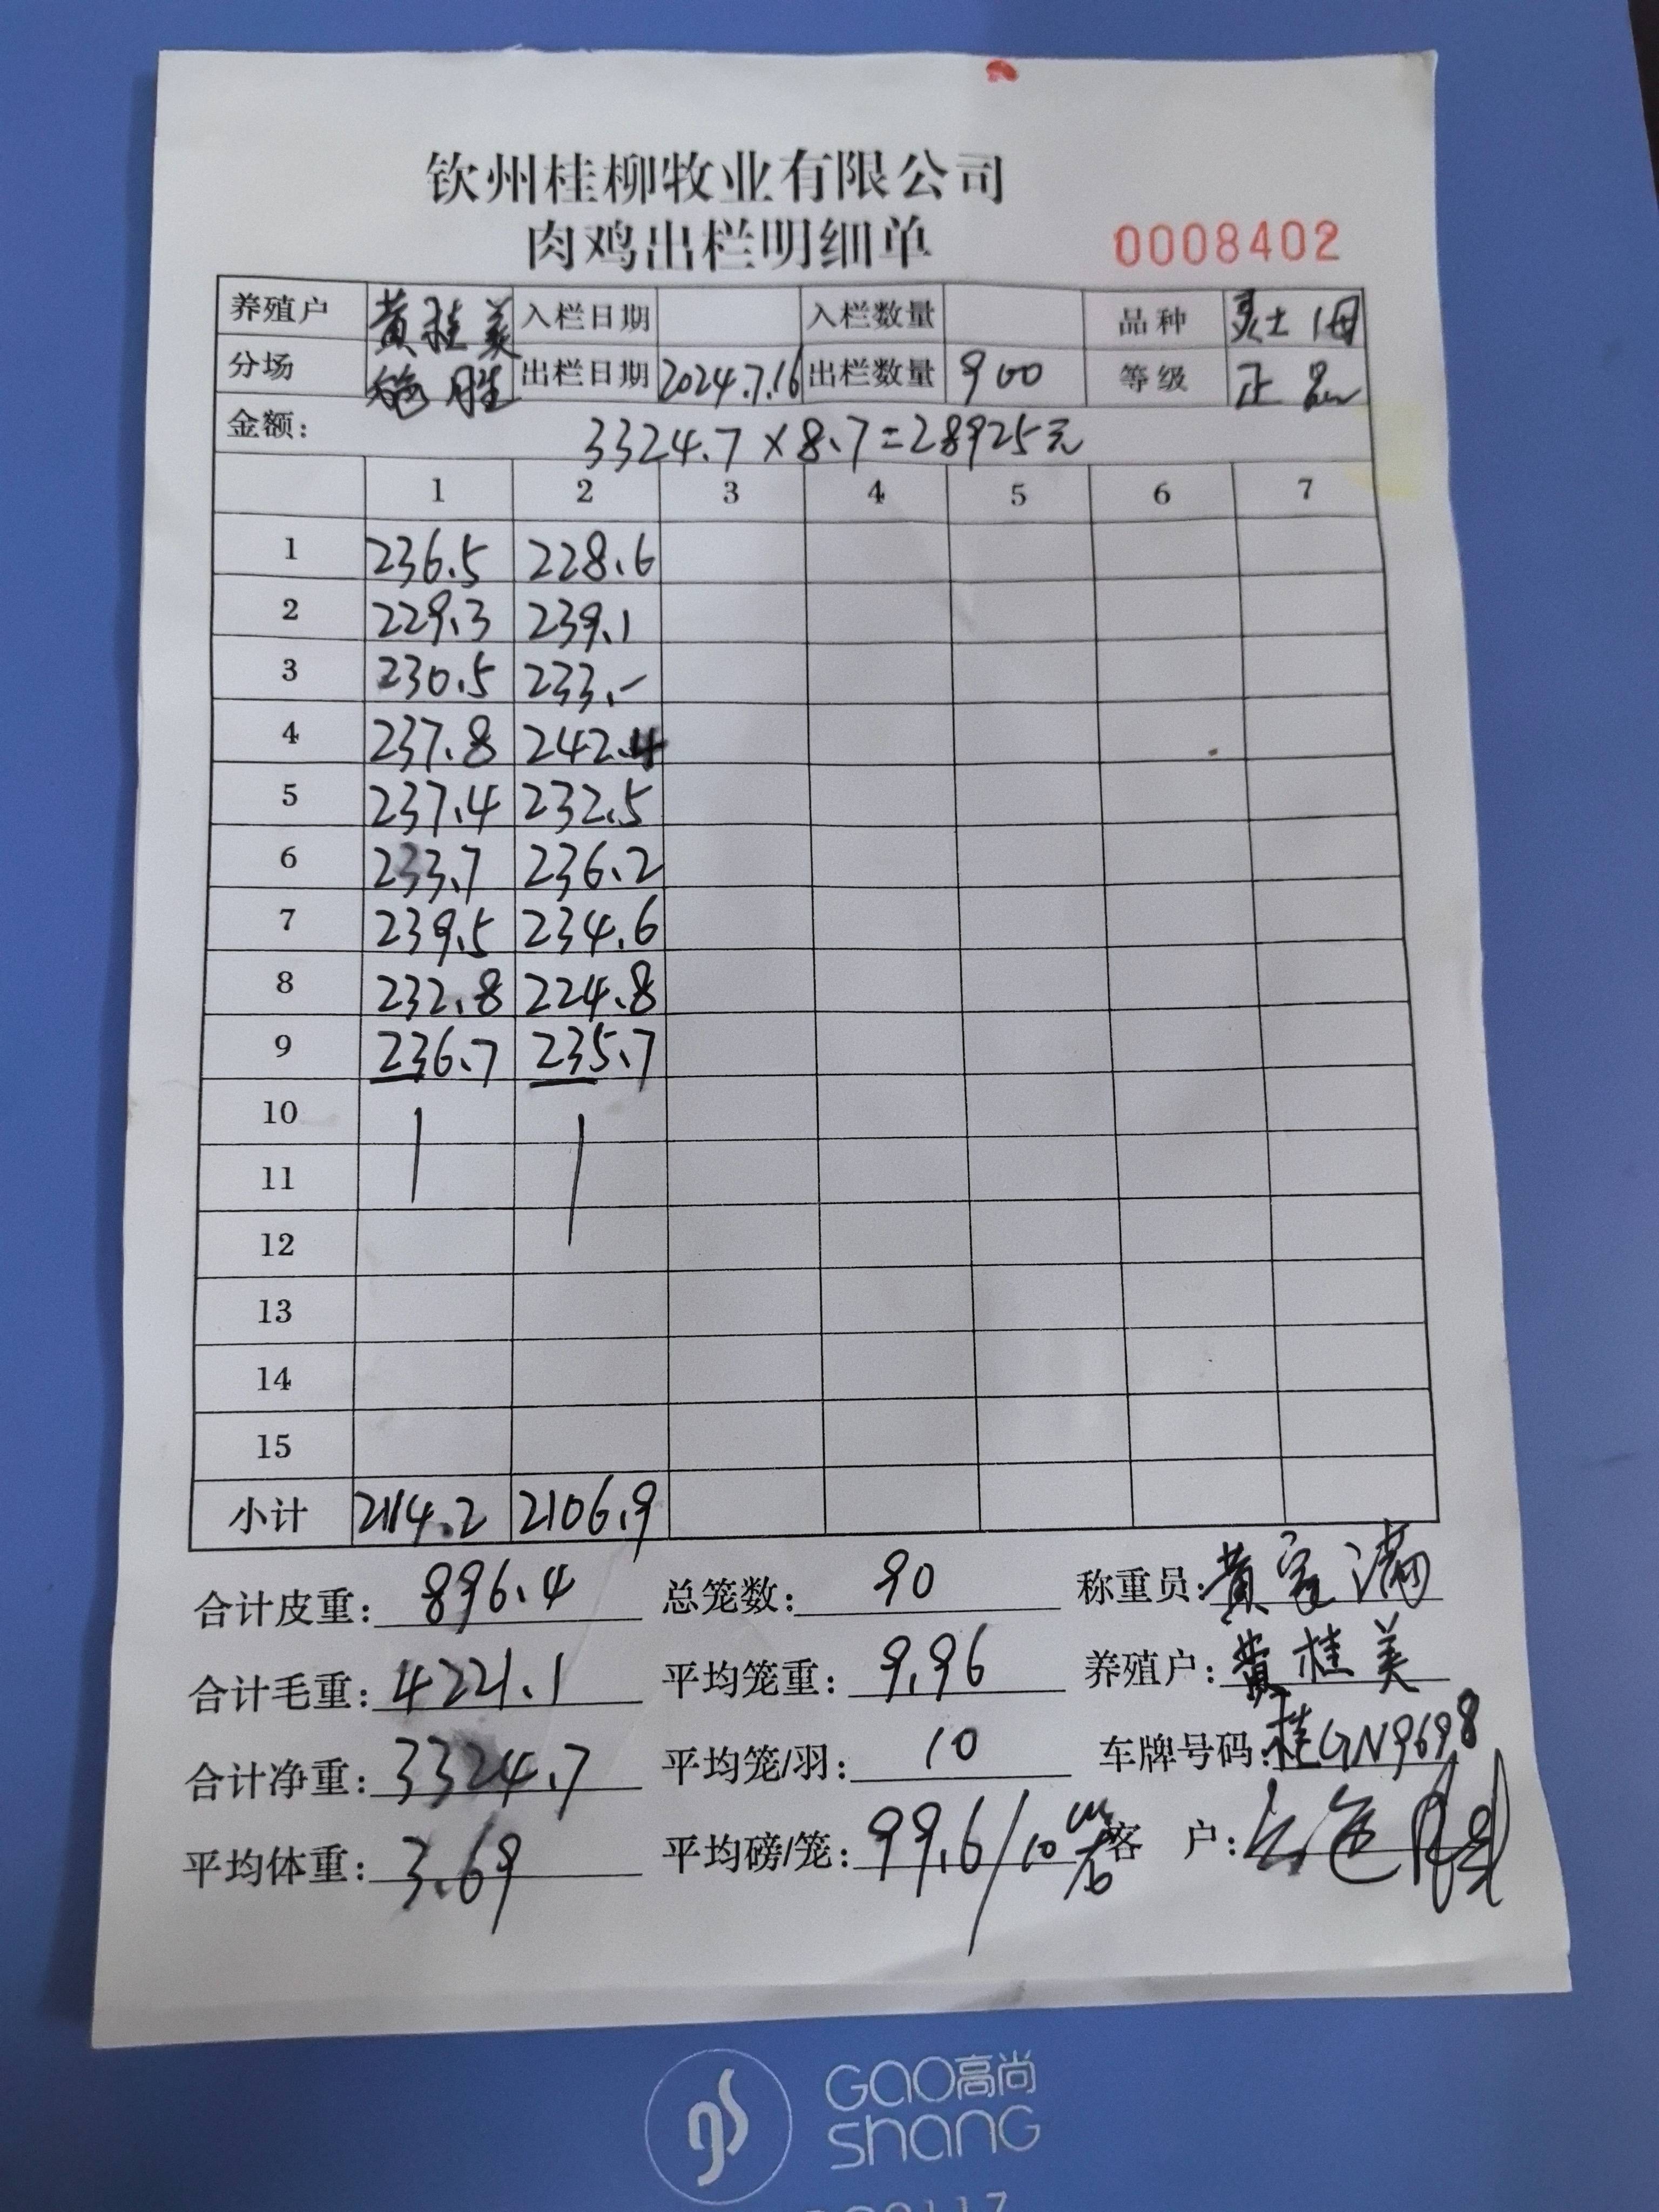 钦州桂柳牧业有限公司
肉鸡出栏明细单 0008402
养殖户 黄桂美 入栏日期 入栏数量 品种
分场 出栏日期 2024.7.16 出栏数量 900 等级 正品
金额: 3324.7×8.7=28925元
1 2 3 4 5 6 7
1 236.5 228.6
2 229.3 239.1
3 230.5 233.-
4 237.8 242.4
5 237.4 232.5
6 233.7 236.2
7 239.5 234.6
8 232.8 224.8
9 236.7 235.7
10
11
12
13
14
15
小计 2114.2 2106.9
合计皮重: 896.4 总笼数: 90 称重员: 黄家满
合计毛重: 4221.1 平均笼重: 9.96 养殖户: 黄桂美
合计净重: 3324.7 平均笼/羽: 10 车牌号码: 桂GN9698
平均体重: 3.69 平均磅/笼: 99.6/10 客 户:
GAO高尚
shang